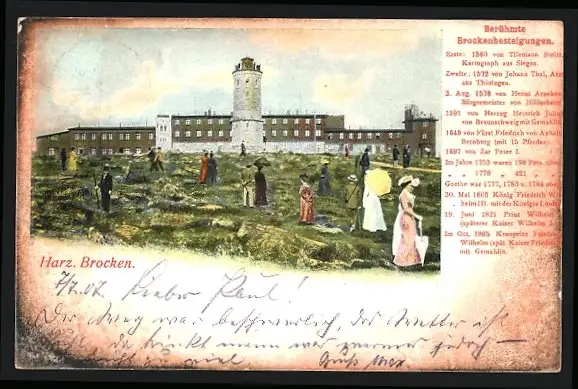 Berühmte
Brockenbesteigungen.
Erste: 1560 von Tilemann
Kartograph aus Siegen.
Zweite: 1572 von Johann Thal,
aus Thüringen.
3. Aug. 1578 von
Bürgermeister von
1591 von Herzog Heinrich
von Braunschweig mit Gemahlin.
1649 von Fürst Friedrich von
Bernburg (mit 15 Pferden).
1697 von Zar Peter I.
Im Jahre 1753 waren 198 Pers.
" " 1779 " 421 "
Goethe war 1777, 1783 u. 1784
30. Mai 1805 König Friedrich
helm III. mit der Königin
19. Juni 1821 Prinz Wilhelm
(späterer Kaiser Wilhelm
Im Oct. 1865 Kronprinz
Wilhelm (spät. Kaiser
mit Gemahlin.
Harz. Brocken.
7/7.07. Lieber Paul!
Der Weg war beschwerlich, das Wetter ist
da trinkt man warmer Jedoch —
zu viel Gruß Max